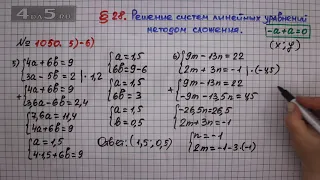 4 на 5 по
.com
§ 28. Решение систем линейных уравнений
методом сложения.
-a+a=0
(x; y)
№ 1050. 5)-6)
5) {4a+6b=9
3a-5b=2 |·1,2
{4a+6b=9
3,6a-6b=2,4
{7,6a=11,4
4a+6b=9
{a=1,5
4·1,5+6b=9
{a=1,5
6b=9-6
{a=1,5
6b=3
{a=1,5
b=0,5
Ответ: (1,5; 0,5)
6) {9m-13n=22
2m+3n=-1 |·(-4,5)
+ {9m-13n=22
-9m-13,5n=4,5
{-26,5n=26,5
2m+3n=-1
{n=-1
2m=-1-3·(-1)